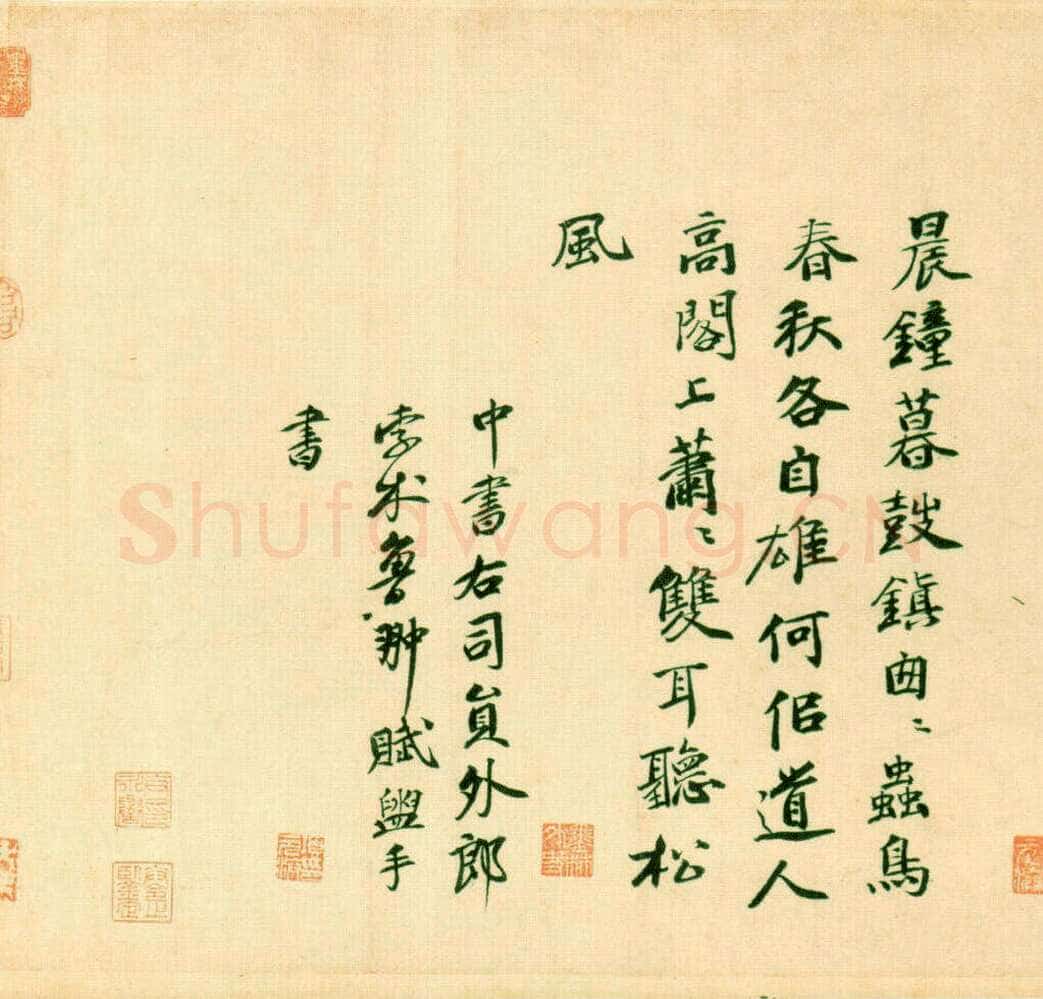 晨鐘暮鼓鎮囪〻蟲鳥
春秋各自雄何佀道人
高閣上蕭〻雙耳聽松
風
中書右司貟外郎
孛术魯翀賦盥手
書
Shufawang.CN